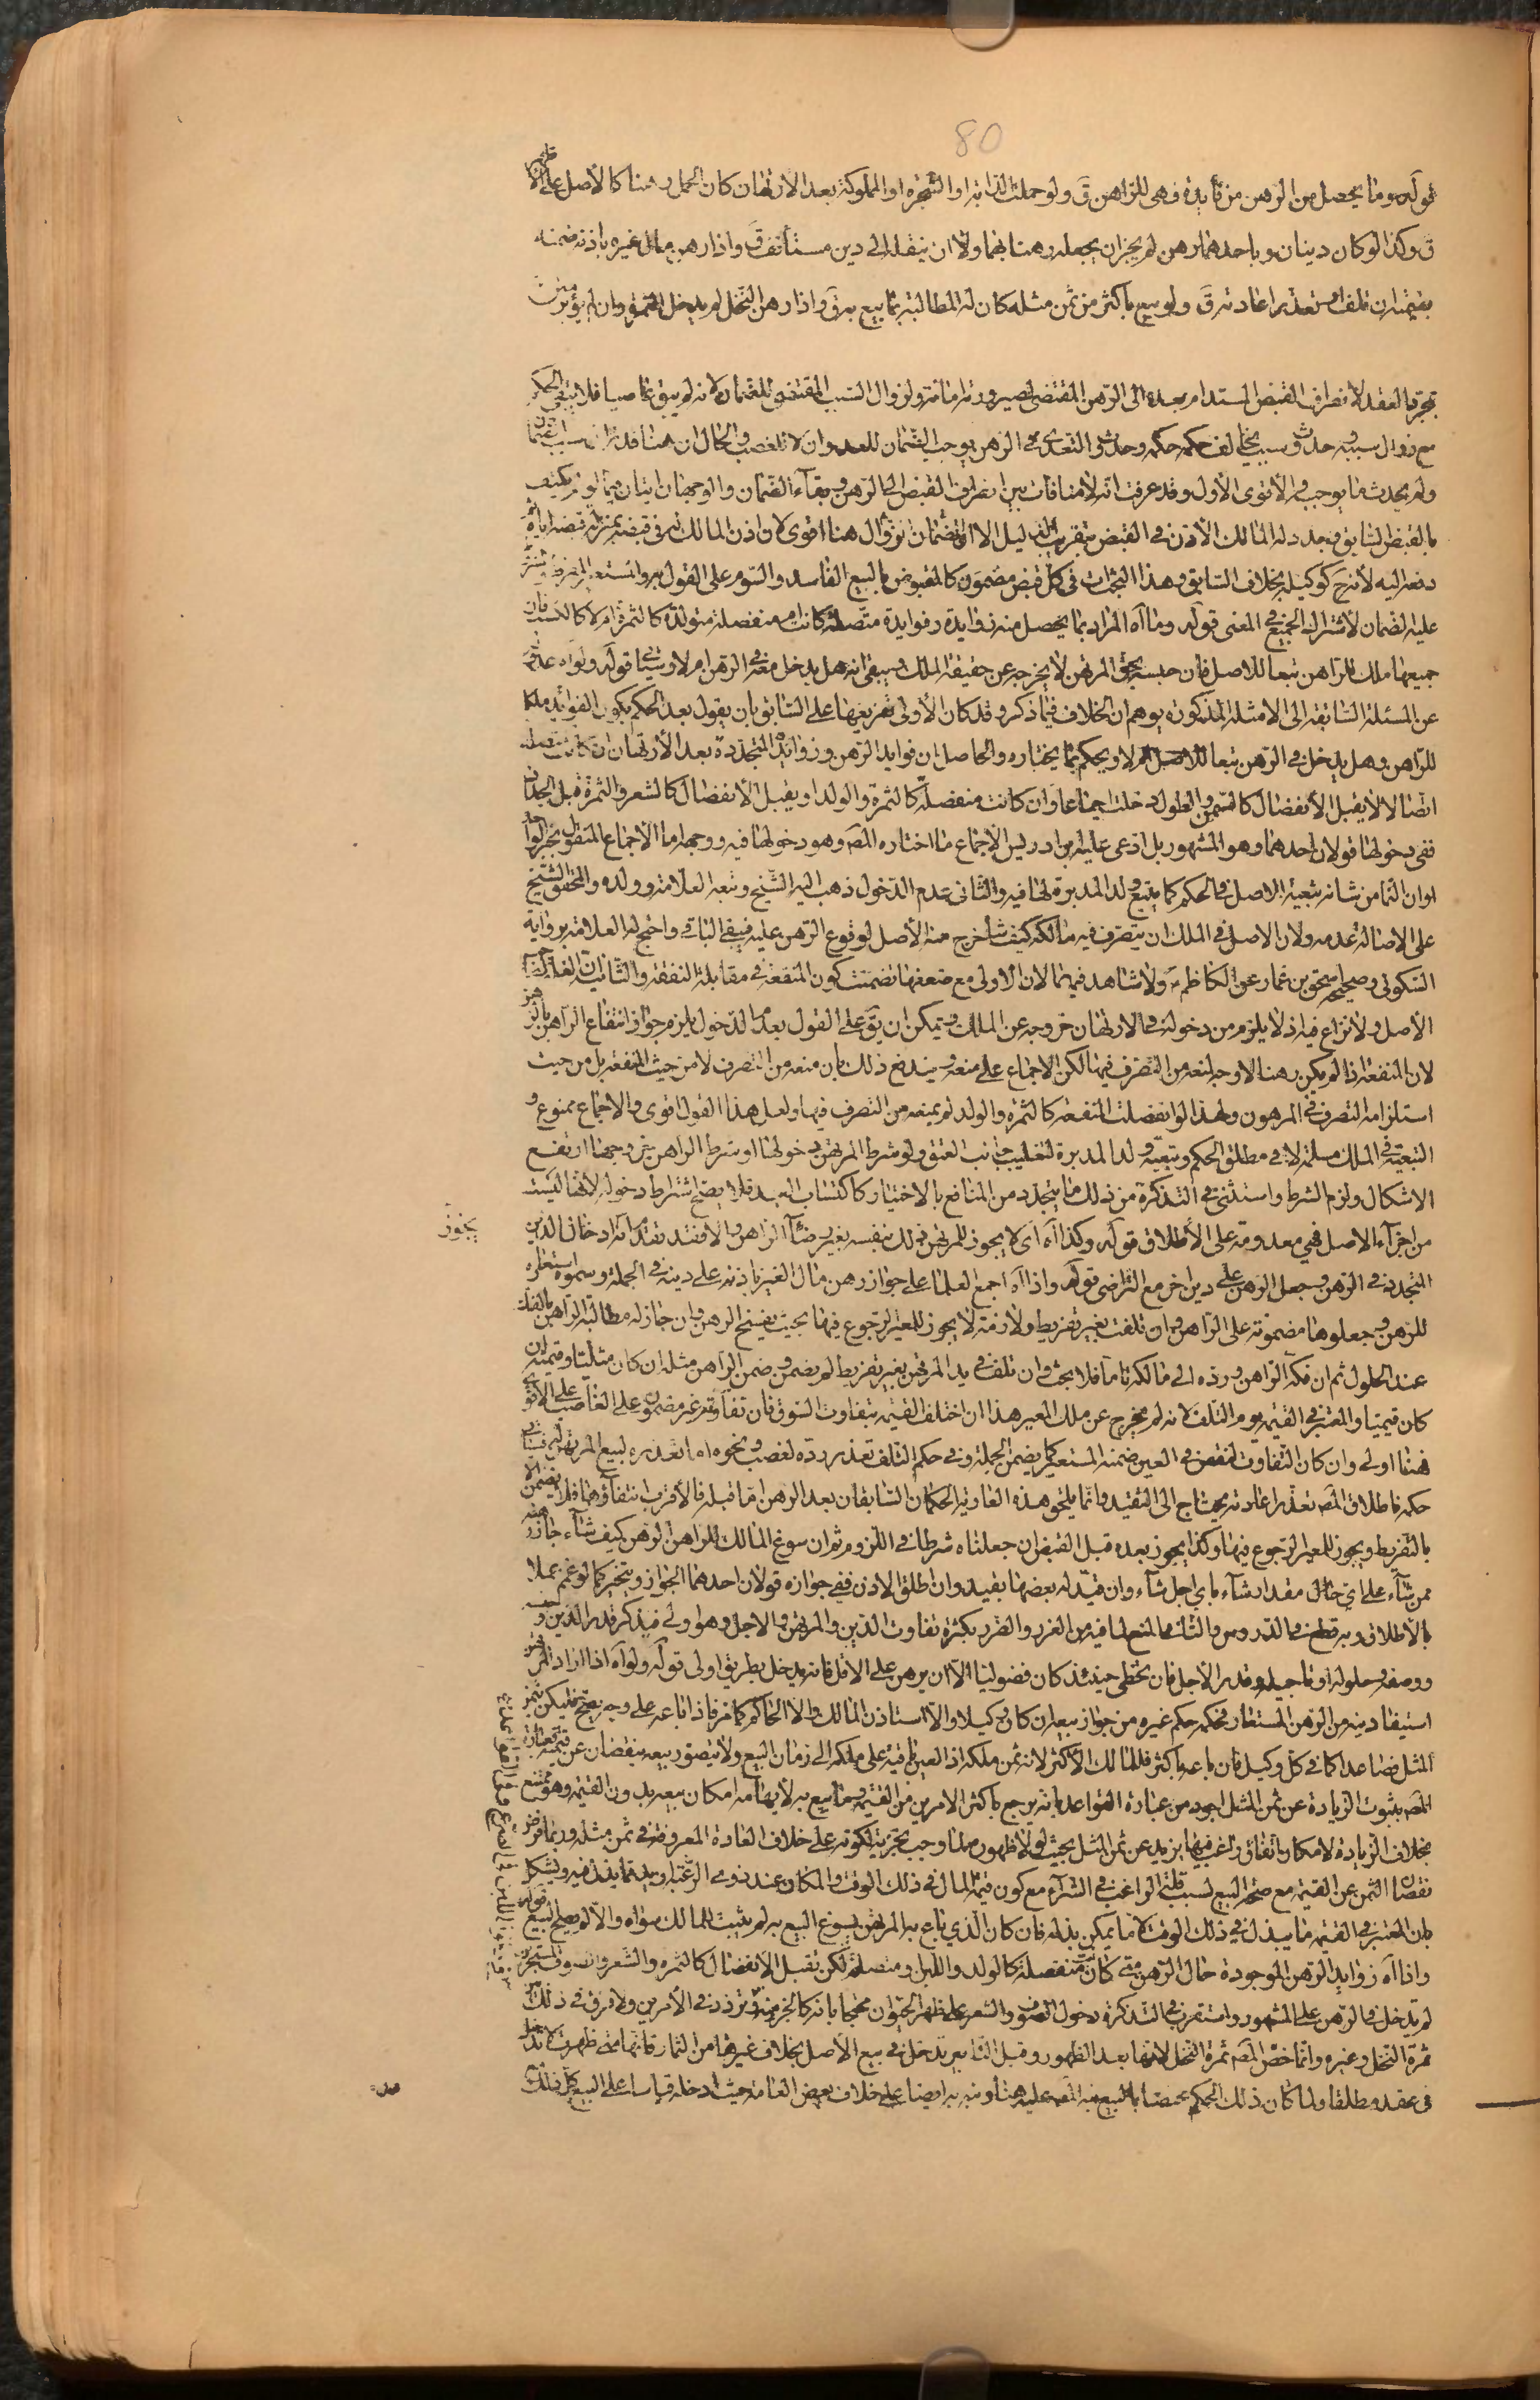 80
قوله وما يحصل من الرهن من فايدة فهى للراهن ق ولو حملت الدابة او الشجرة او المملوكة بعد الارتهان كان الحمل رهنا كالاصل على الاظهر
ق وكذا لو كان دينان وباحدهما رهن لم يجز ان يجعله رهنا بهما ولا ان ينقله الى دين مستأنف ق واذا رهن مال غيره باذنه ضمنه
بقيمته ان تلف او تعذر اعادته ق ولو بيع باكثر من ثمن مثله كان له المطالبة بما بيع به ق واذا رهن النخل لم يدخل الثمرة وان لم يؤبر
بمجرد العقد لانصراف القبض المستدام بعده الى الرهن المقتضى لصيرورته امانة ولزوال السبب المقتضى للضمان لانه لم يبق غاصبا فلا يبقى الحكم
مع زوال سببه وحدوث سبب يخالف حكمه حكمه وحدوث التعدى فى الرهن يوجب الضمان للعدوان لا للغصب والحال ان هنا قد زال
ولم يحدث ما يوجب والاقوى الاول وقد عرفت انه لا منافات بين انصراف القبض الى الرهن وبقاء الضمان والوجهان اتيان فيما لو لم يكتف
بالقبض السابق وجدد له المالك الاذن فى القبض بتقريب الدليل الا ان الضمان زوال هنا اقوى لان اذن المالك له فى قبضه بمنزلة قبضه اياه
دفعه اليه لانه ح كوكيله بخلاف السابق وهذا البحث ات فى كل قبض مضمون كالمقبوض بالبيع الفاسد والسوم على القول به والمستعير المفرط
عليه الضمان لاشتراك الجميع فى المعنى قوله وما اه المراد بما يحصل منه زوايده وفوايده متصلة كانت ام منفصلة متولدة كالثمرة ام لا كالكسب فان
جميعها ملك للراهن تبعا للاصل فان حبسه بحق المرتهن لا يخرجه عن حقيقة الملك ويبقى انه هل يدخل معه فى الرهن ام لا وسياتى قوله ولو اه
عن المسئلة السابقة الى الامثلة المذكورة يوهم ان الخلاف فيما ذكر وقد كان الاولى تفريعها على السابق بان يقول بعد الحكم بكون الفوائد ملكا
للراهن وهل يدخل فى الرهن تبعا للاصل ام لا ويحكم بما يختاره والحاصل ان فوايد الرهن وزوايده المتجددة بعد الارتهان ان كانت متصلة
اتصالا لا يقبل الانفصال كالسمن والطول دخلت اجماعا وان كانت منفصلة كالثمرة والولد او يقبل الانفصال كالشعر والثمرة قبل الجذاذ
ففى دخولها قولان احدهما وهو المشهور بل ادعى عليه ابن ادريس الاجماع ما اختاره المص وهو دخولها فيه ووجهه اما الاجماع المنقول بخبر الواحد
او ان النما من شانه تبعية الاصل فى الحكم كما يتبع ولد المدبرة لها فيه والثانى عدم الدخول ذهب اليه الشيخ وتبعه العلامة وولده والمحقق الشيخ
على الاصالة عدمه ولان الاصل فى الملك ان يتصرف فيه مالكه كيف شاء خرج منه الاصل لوقوع الرهن عليه فيبقى الباقى واحتج له العلامة برواية
السكونى وصحيحة اسحق بن عمار عن الكاظم ع ولا شاهد فيهما لان الاولى مع ضعفها تضمنت كون المنفعة فى مقابلة النفقة والثانية ان الغلة لصاحب
الاصل ولا نزاع فيه اذ لا يلزم من دخوله فى الارتهان خروجه عن الملك ويمكن ان يق على القول بعدم الدخول يلزم جواز انتفاع الراهن بالرهن
لان المنفعة اذا لم يكن رهنا لا وجه لمنعه من التصرف فيها لكن الاجماع على منعه ويندفع ذلك بان منعه من التصرف لا من حيث المنفعة بل من حيث
استلزامه التصرف فى المرهون ولهذا لو انفصلت المنفعة كالثمرة والولد لم يمنعه من التصرف فيها ولعل هذا القول اقوى والاجماع ممنوع و
التبعية فى الملك مسلمة لا فى مطلق الحكم وتبعية ولد المدبرة لتغليب جانب العتق ولو شرط المرتهن دخولها او شرط الراهن خروجها ارتفع
الاشكال ولزم الشرط واستثنى فى التذكرة من ذلك ما يتجدد من المنافع بالاختيار كاكتساب العبد فلا يصح اشتراط دخوله لانها ليست
من اجزاء الاصل فهى معدومة على الاطلاق قوله وكذا اه اى لا يجوز للمرتهن ذلك بنفسه بغير رضاء الراهن والا فقد تقدم انه ادخال الدين
يجوز
المتجدد فى الرهن وجعل الرهن على دين اخر مع التراضى قوله واذا اه اجمع العلما على جواز رهن مال الغير باذنه على دينه فى الجملة وسموه استعارة
للرهن وجعلوها مضمونة على الراهن وان تلفت بغير تفريط ولازمة لا يجوز للمعير الرجوع فيها بحيث يفسخ الرهن وان جاز له مطالبة الراهن بالفك
عند الحلول ثم ان فكه الراهن ورده الى مالكه تاما فلا بحث وان تلف فى يد المرتهن بغير تفريط لم يضمن وضمن الراهن مثله ان كان مثليا وقيمته ان
كان قيميا والمعتبر فى القيمة يوم التلف لانه لم يخرج عن ملك المعير هذا ان اختلف القيمة بتفاوت السوق فان تفاوته غير مضمون على الغاصب على الاقوى
فهنا اولى وان كان التفاوت لنقص فى العين ضمنه المستعير كما يضمن الجملة وفى حكم التلف تعذر رده لغصب ونحوه اما تعذره لبيع المرتهن له فسياتى
حكمه فاطلاق المص تعذر اعادته يحتاج الى التقييد وانما يلحق هذه العارية الحكمان السابقان بعد الرهن اما قبله فالاقرب انتفاؤهما فلا يضمن الا
بالتفريط ويجوز للمعير الرجوع فيها وكذا يجوز بعده قبل القبض ان جعلناه شرطا فى اللزوم ثم ان سوغ المالك للراهن الرهن كيف شاء جاز رهنه
ممن شاء على اى حال مقدار شاء باى اجل شاء وان قيد له بعضها تقيد وان اطلق الاذن ففى جوازه قولان احدهما الجواز ويتخير كما لو عمم عملا
بالاطلاق وبه قطع فى الدروس والثانى المنع لما فيه من الغرر والضرر بكثرة تفاوت الدين والمرتهن والاجل وهو اولى فيذكر قدر الدين وجنسه
ووصفه وحلوله او تاجيله وقدر الاجل فان تخطى حينئذ كان فضوليا الا ان يرهن على الاقل فانه يدخل بطريق اولى قوله ولو اه اذا اراد المرتهن
استيفا دينه من الرهن المستعار فحكمه حكم غيره من جواز بيعه ان كان وكيلا والا استاذن المالك والا الحاكم كما مر فاذا باعه على وجه يصح فليكن بثمن
المثل فصاعدا كما فى كل وكيل فان باعه باكثر فللمالك الاكثر لانه ثمن ملكه اذ العين باقية على ملكه الى زمان البيع ولا يتصور بيعه بنقصان عن قيمته فعبارة
المص بثبوت الزيادة عن ثمن المثل اجود من عبارة القواعد بانه يرجع باكثر الامرين من القيمة وما بيع به لايهامه امكان بيعه بدون القيمة وهو ممتنع
بخلاف الزيادة لامكان باتفاق راغب فيها يزيد عن ثمن المثل بحيث لولا ظهوره لما وجب تحريه لكونه على خلاف العادة المعروفة فى ثمن مثله وربما فرض
نقصان الثمن عن القيمة مع صحة البيع لسبب قلة الراغب فى الشراء مع كون قيمة المال فى ذلك الوقت والمكان عند ذوى الرغبة ازيد مما يبذل فيه ويشكل
بان المعتبر فى القيمة ما يبذل فى ذلك الوقت لا ما يمكن بذله فان كان الذى باع به المرتهن يسوغ البيع به لم يثبت للمالك سواه والا لم يصح البيع قوله
واذا اه زوايد الرهن الموجودة حال الرهن متى كانت منفصلة كالولد واللبن ومتصلة لكن تقبل الانفصال كالثمرة والشعر والصوف
لم يدخل فى الرهن على المشهور واستقرب فى التذكرة دخول الصوف والشعر على ظهر الحيوان محتجا بانه كالجزء منه وتردد فى الامرين ولا فرق فى ذلك
ثمرة النخل وغيره وانما خص المص ثمرة النخل لانها بعد الظهور وقبل التابير تدخل فى بيع الاصل بخلاف غيرها من الثمار فانها متى ظهرت لا تدخل
فى عقده مطلقا ولما كان ذلك الحكم مختصا بالبيع نبه المص عليه هنا ونبه به ايضا على خلاف بعض العامة حيث ادخله قياسا على البيع